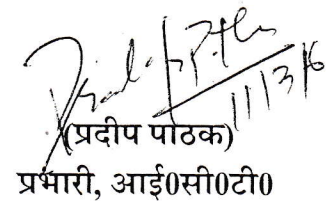 11/3/16
(प्रदीप पाठक)
प्रभारी, आई0सी0टी0